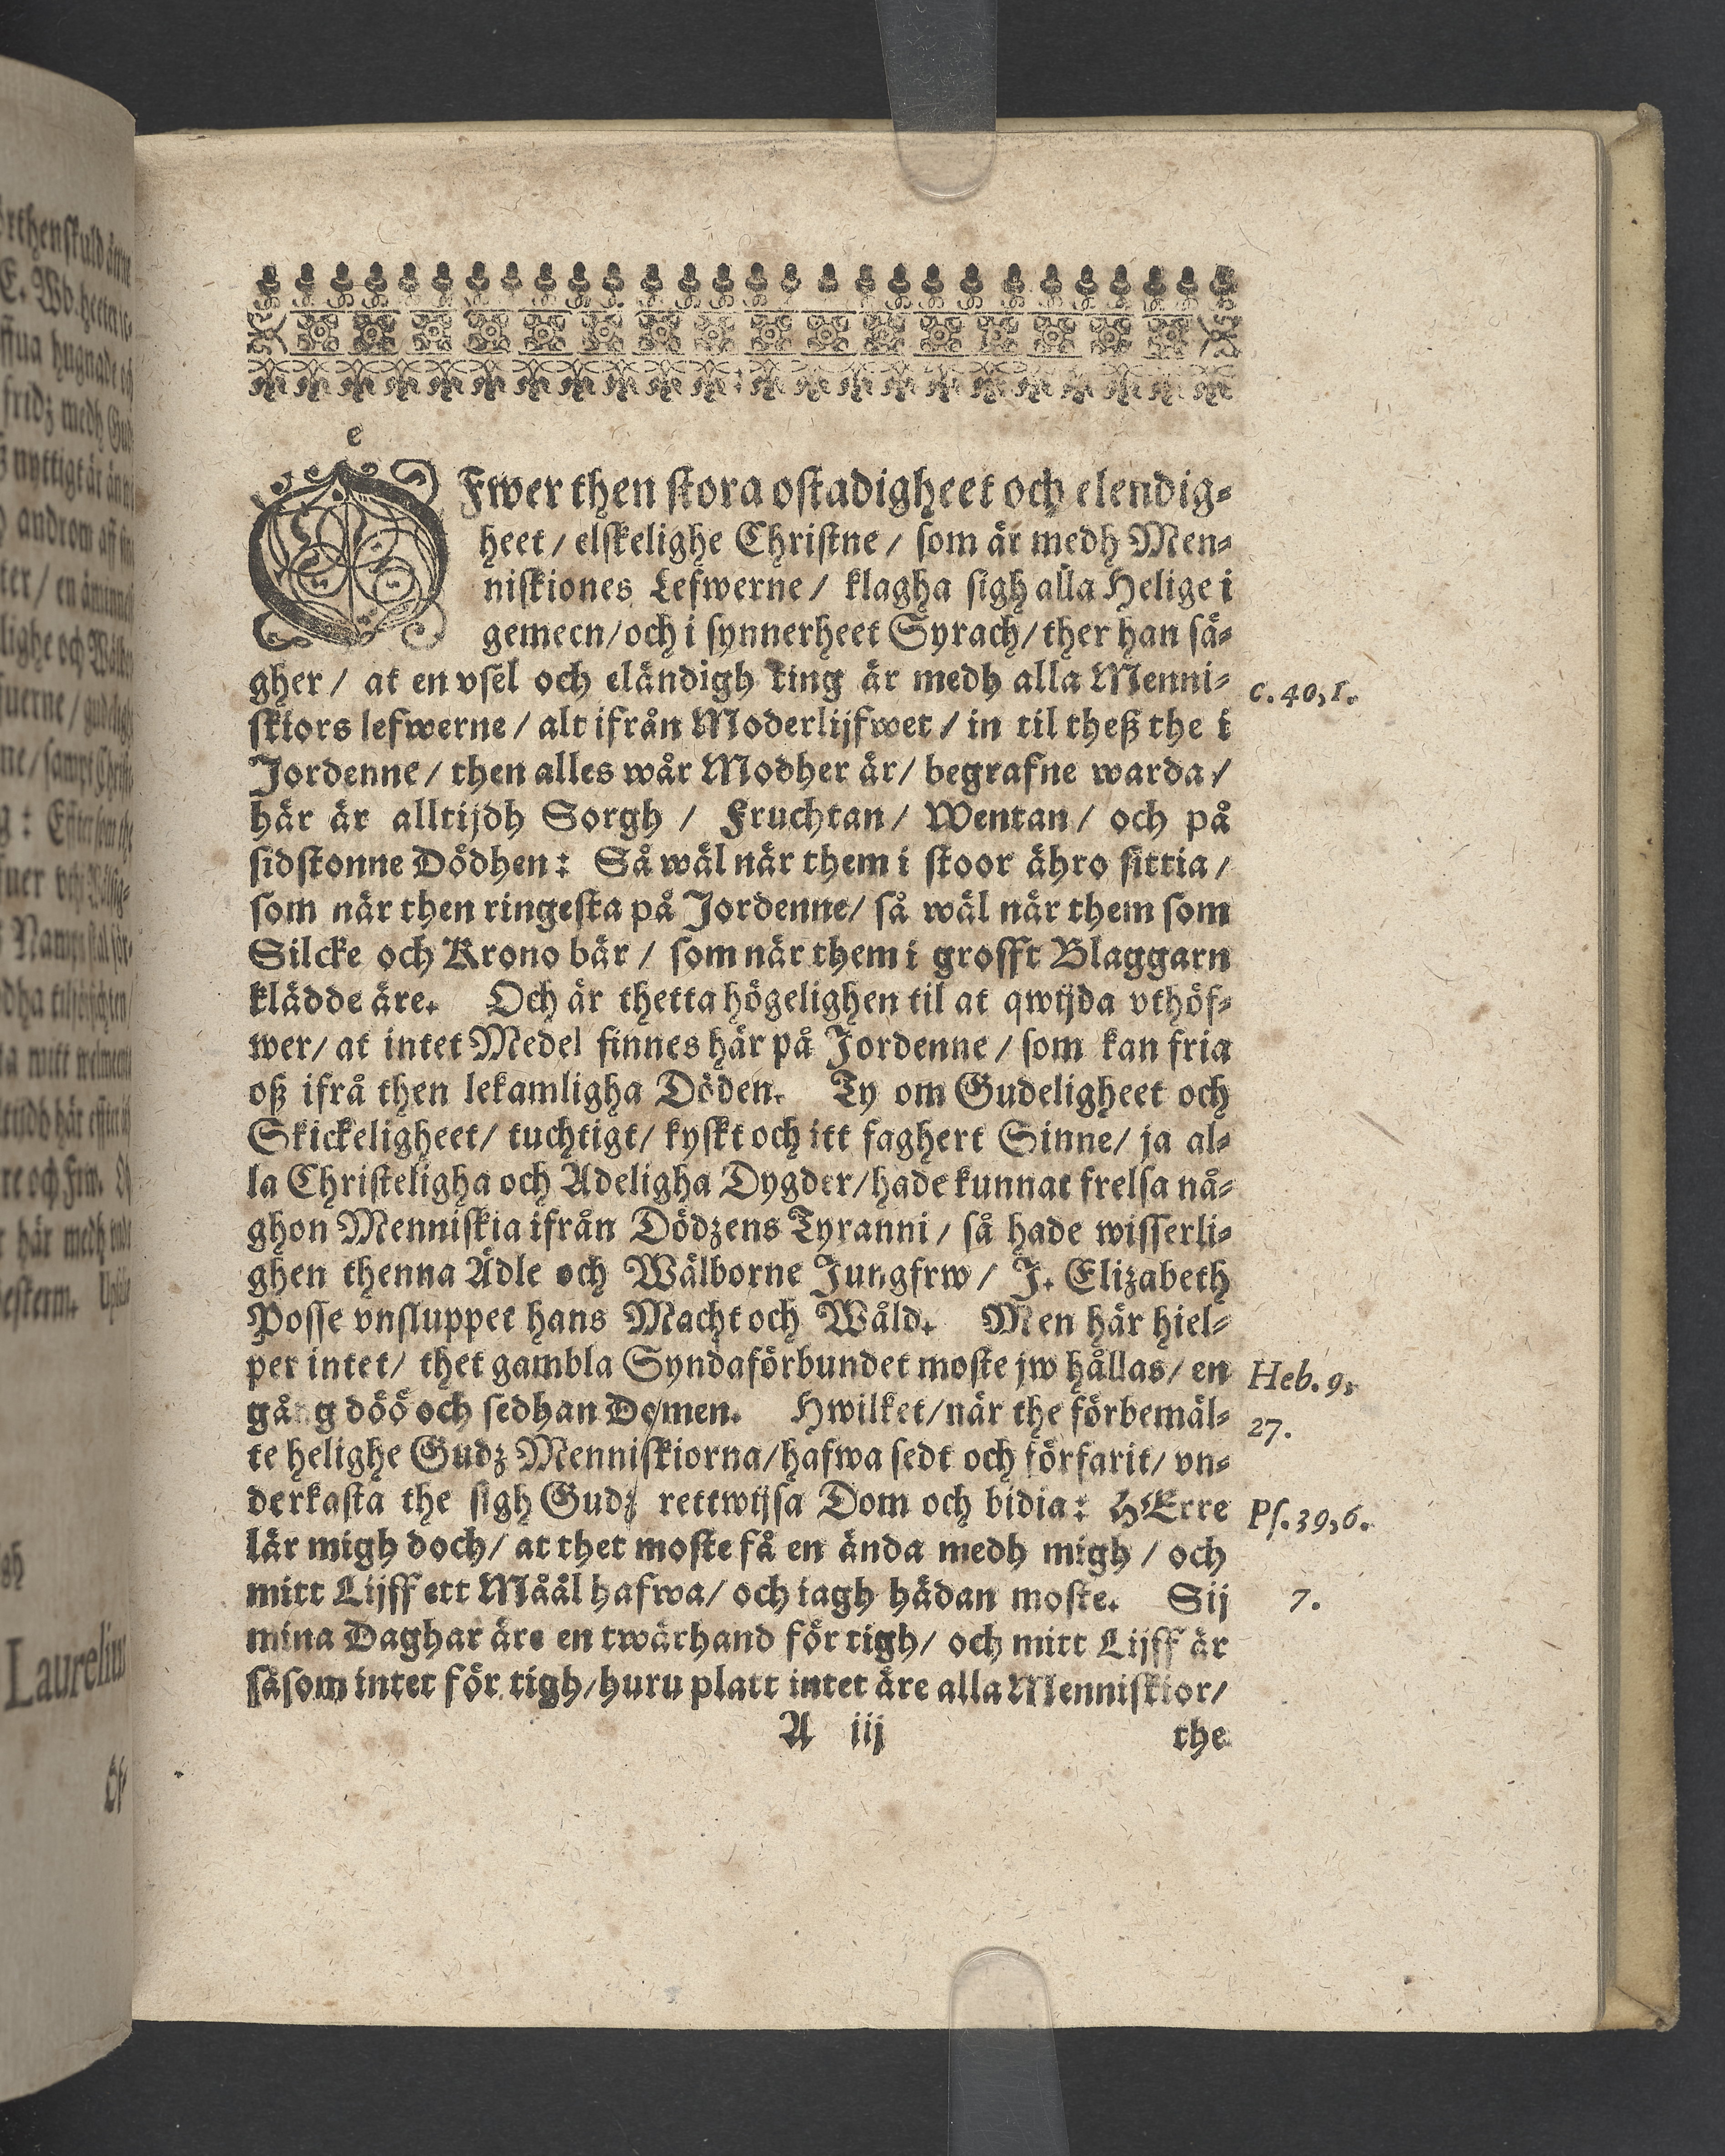 Öfwer then stora ostadigheet och elendig-
heet / elskelighe Christne / som är medh Men-
niskiones Lefwerne / klagha sigh alla Helige i
gemeen/ och i synnerheet Syrach/ ther han sä-
gher / at en vsel och eländigh ting är medh alla Menni-
skiors lefwerne / alt ifrån Moderlijfwet / in til theß the i
Jordenne / then alles wår Modher är/ begrafne warda /
här är alltijdh Sorgh / Fruchtan / Wentan / och på
sidstonne Dödhen: Så wäl när them i stoor ähro sittia /
som när then ringesta på Jordenne/ så wäl när them som
Silcke och Krono bär / som när them i grofft Blaggarn
klädde äre. Och är thetta högelighen til at qwijda vthöf-
wer/ at intet Medel finnes här på Jordenne / som kan fria
oß ifrå then lekamligha Döden. Ty om Gudeligheet och
Skickeligheet/ tuchtigt/ kyskt och itt faghert Sinne/ ja al-
la Christeligha och Adeligha Dygder/ hade kunnat frelsa nå-
ghon Menniskia ifrån Dödzens Tyranni / så hade wisserli-
ghen thenna Ädle och Wälborne Jungfrw / J. Elizabeth
Posse vnsluppet hans Macht och Wåld. Men här hiel-
per intet/ thet gambla Syndaförbundet moste jw hållas/ en
gång döö och sedhan Domen. Hwilket/ när the förbemäl-
te helighe Gudz Menniskiorna/ hafwa sedt och förfarit/ vn-
derkasta the sigh Gudz rettwijsa Dom och bidia: HErre
lär migh doch/ at thet moste få en ända medh migh / och
mitt Lijff ett Måål hafwa/ och iagh hädan moste. Sij
mina Daghar äre en twärhand för tigh/ och mitt Lijff är
såsom intet för tigh/ huru platt intet äre alla Menniskior/
A iij the
c. 40, 1.
Heb. 9,
27.
Ps. 39, 6.
7.
Laurelius